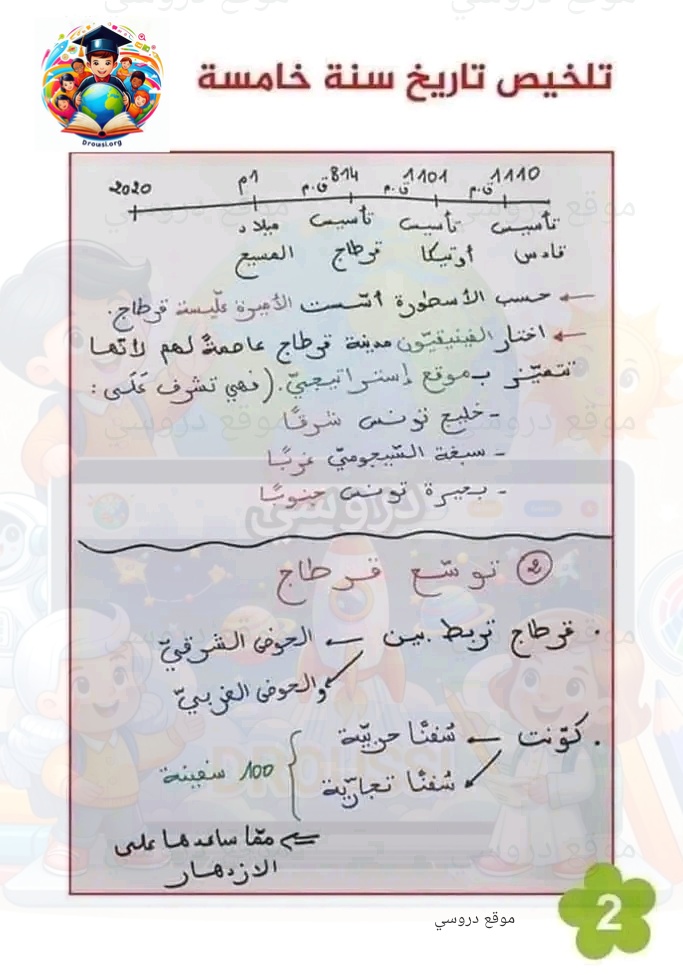 تلخيص تاريخ سنة خامسة
Drousi.org
1110 ق.م 1101 ق.م 814 ق.م 1م 2020
تأسيس تأسيس تأسيس ميلاد
قادس أوتيكا قرطاج المسيح
← حسب الأسطورة أسّست الأميرة علّيسة قرطاج.
← اختار الفينيقيّون مدينة قرطاج عاصمةً لهم لأنّها
تتميّز بموقع إستراتيجيّ. (فهي تشرف عَلَى:
- خليج تونس شرقًا
- سبخة السّيجوميّ غربًا
- بحيرة تونس جنوبًا
② توسّع قرطاج
. قرطاج تربط بين ← الحوض الشرقيّ
والحوض الغربيّ
. كوّنت ← سُفنًا حربيّة
سُفنًا تجاريّة } 100 سفينة
⇐ ممّا ساعدها على
الازدهار
موقع دروسي
2
موقع دروسي
دروسي
DROUSSI